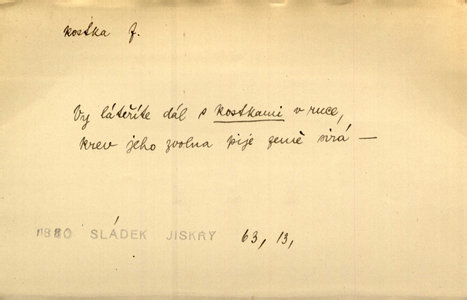 kostka f.
Vy láteříte dál s kostkami v ruce,
krev jeho zvolna pije země sirá —
1880 SLÁDEK JISKRY 63, 13,